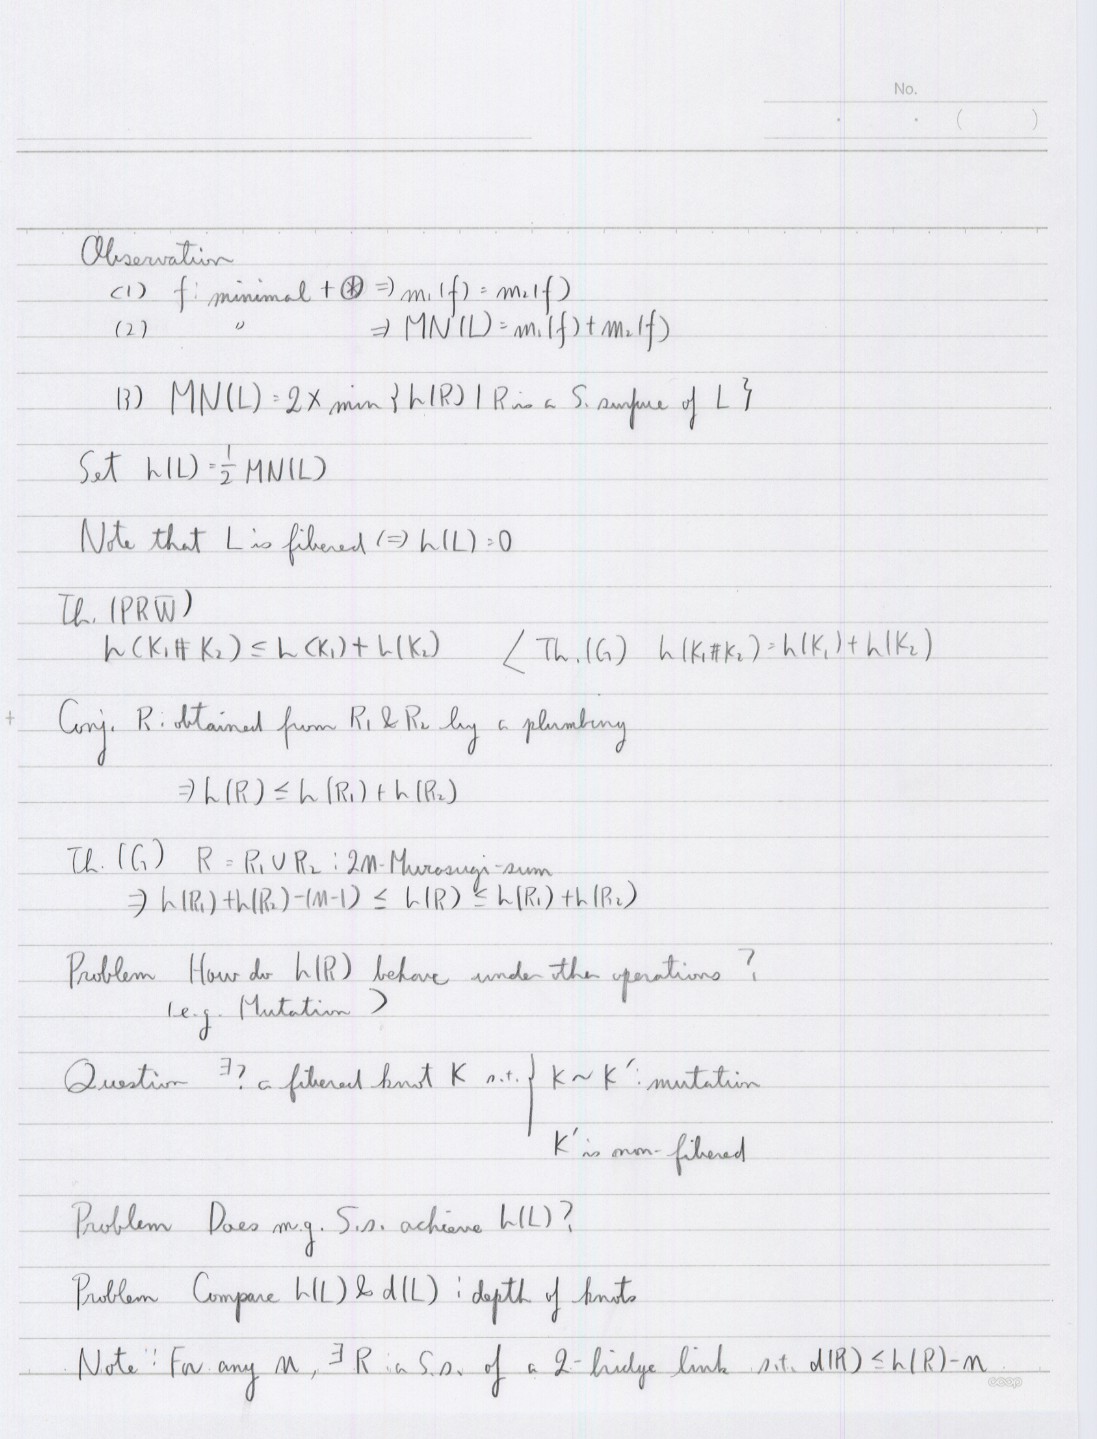 No.
· · ( )
Observation
(1) f: minimal + ⊛ ⇒ m₁(f) = m₂(f)
(2) 〃 ⇒ MN(L) = m₁(f) + m₂(f)
(3) MN(L) = 2 × min { h(R) | R is a S. surface of L }
Set h(L) = 1/2 MN(L)
Note that L is fibered ⇔ h(L) = 0
Th. (PRW)
h(K₁ # K₂) ≤ h(K₁) + h(K₂) < Th. (G) h(K₁#K₂) = h(K₁) + h(K₂)
Conj. R: obtained from R₁ & R₂ by a plumbing
⇒ h(R) ≤ h(R₁) + h(R₂)
Th. (G) R = R₁ ∪ R₂ : 2n-Murasugi-sum
⇒ h(R₁) + h(R₂) - (n-1) ≤ h(R) ≤ h(R₁) + h(R₂)
Problem How do h(R) behave under other operations ?
(e.g. Mutation )
Question ∃? a fibered knot K s.t. { K ~ K′ : mutation
K′ is non-fibered
Problem Does m.g. S.s. achieve h(L) ?
Problem Compare h(L) & d(L) : depth of knots
Note : For any n, ∃ R : a S.s. of a 2-bridge link s.t. d(R) ≤ h(R) - n
coop